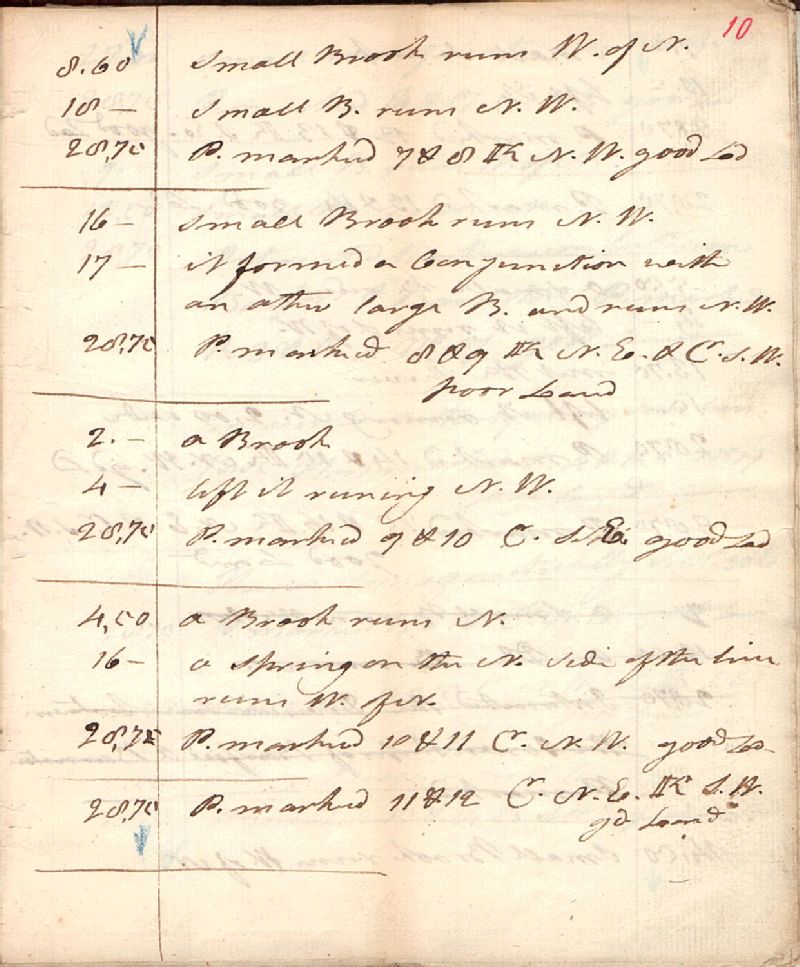 10
8.60 Small Brook runs W. of N.
18 — Small B. runs N. W.
28,75 P. marked 7 & 8 N. W. good Ld
16 — Small Brook runs N. W.
17 — it formed a Conjunction with
an other large B. and runs N. W.
28,75 P. marked 8 & 9 N. E. & C. S. W.
poor Land
2. — a Brook
4 — left it runing N. W.
28,75 P. marked 9 & 10 C. S. E. good Ld
4,50 a Brook runs N.
16 — a Spring on the N. Side of the line
runs W. of N.
28,75 P. marked 10 & 11 Cr. N. W. good Ld
28,75 P. marked 11 & 12 Cr. N. E. S. W.
gd Land